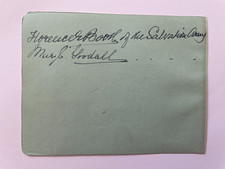 Florence E Booth of the Salvation Army
Mrs. C. Goodall . . . .